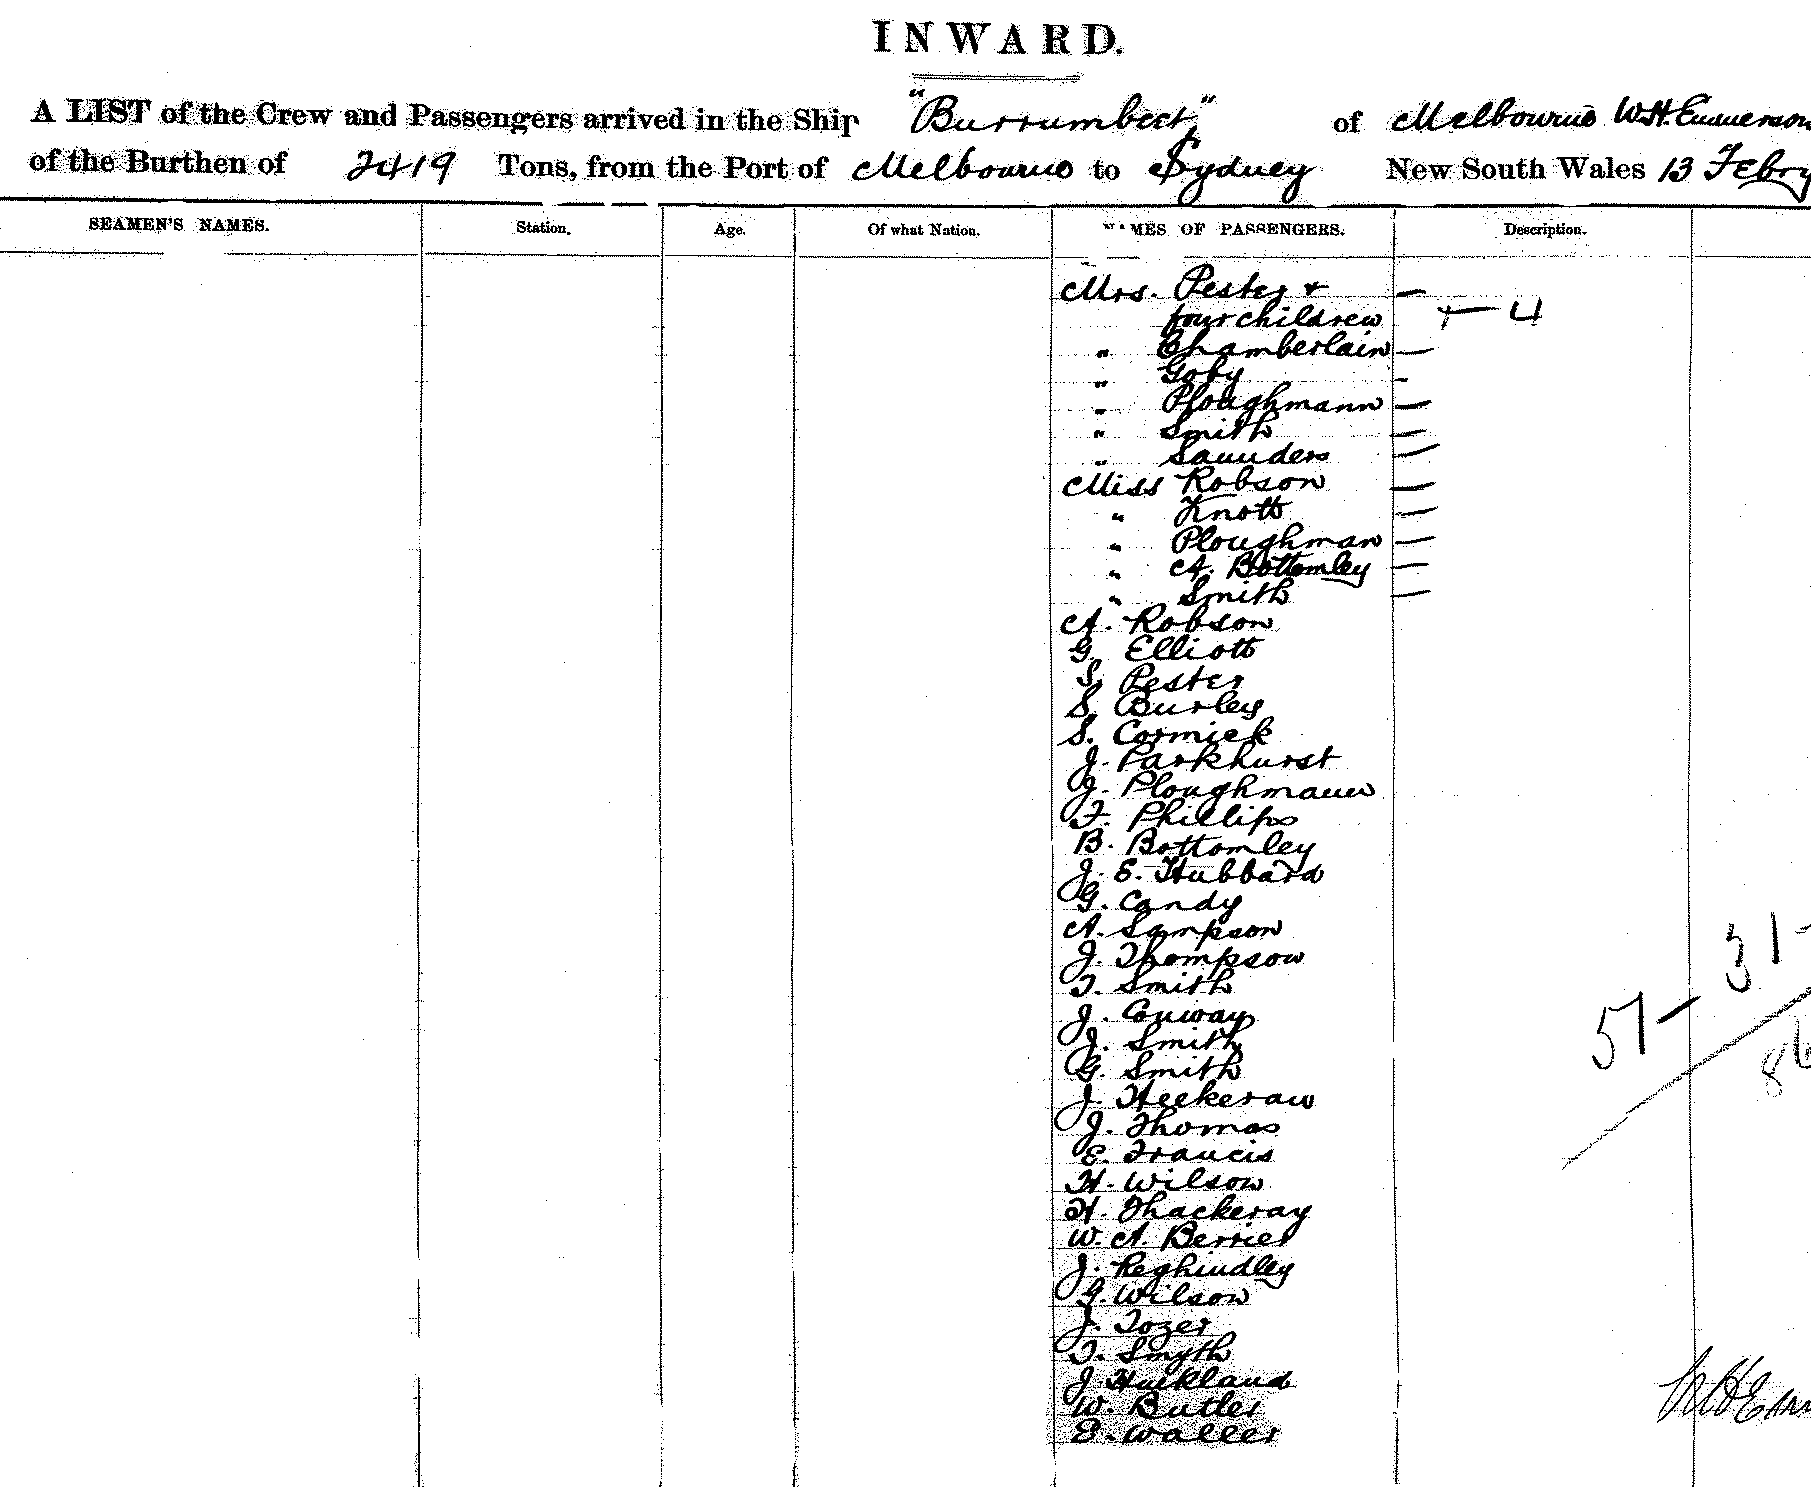 INWARD.
A LIST of the Crew and Passengers arrived in the Ship "Burrumbeet" of Melbourne W.H. Emmerson
of the Burthen of 2419 Tons, from the Port of Melbourne to Sydney New South Wales 13 Febry
SEAMEN'S NAMES. Station. Age. Of what Nation. NAMES OF PASSENGERS. Description.
Mrs. Pester &
four children 4
" Chamberlain
" Goby
" Ploughmann
" Smith
" Saunders
Miss Robson
" Knott
" Ploughman
" A. Bottomley
" Smith
A. Robson
G. Elliott
S. Pester
S. Burley
S. Cormick
J. Parkhurst
J. Ploughmann
F. Phillips
B. Bottomley
J. E. Hubbard
G. Candy
A. Sampson
J. Thompson
T. Smith
J. Conway
J. Smith
G. Smith
J. Heekeran
J. Thomas
E. Francis
H. Wilson
H. Thackeray
W. A. Berrier
J. Reghindley
G. Wilson
J. Tozer
T. Smyth
J.
W. Butler
E. Waller
57 - 31 -
86